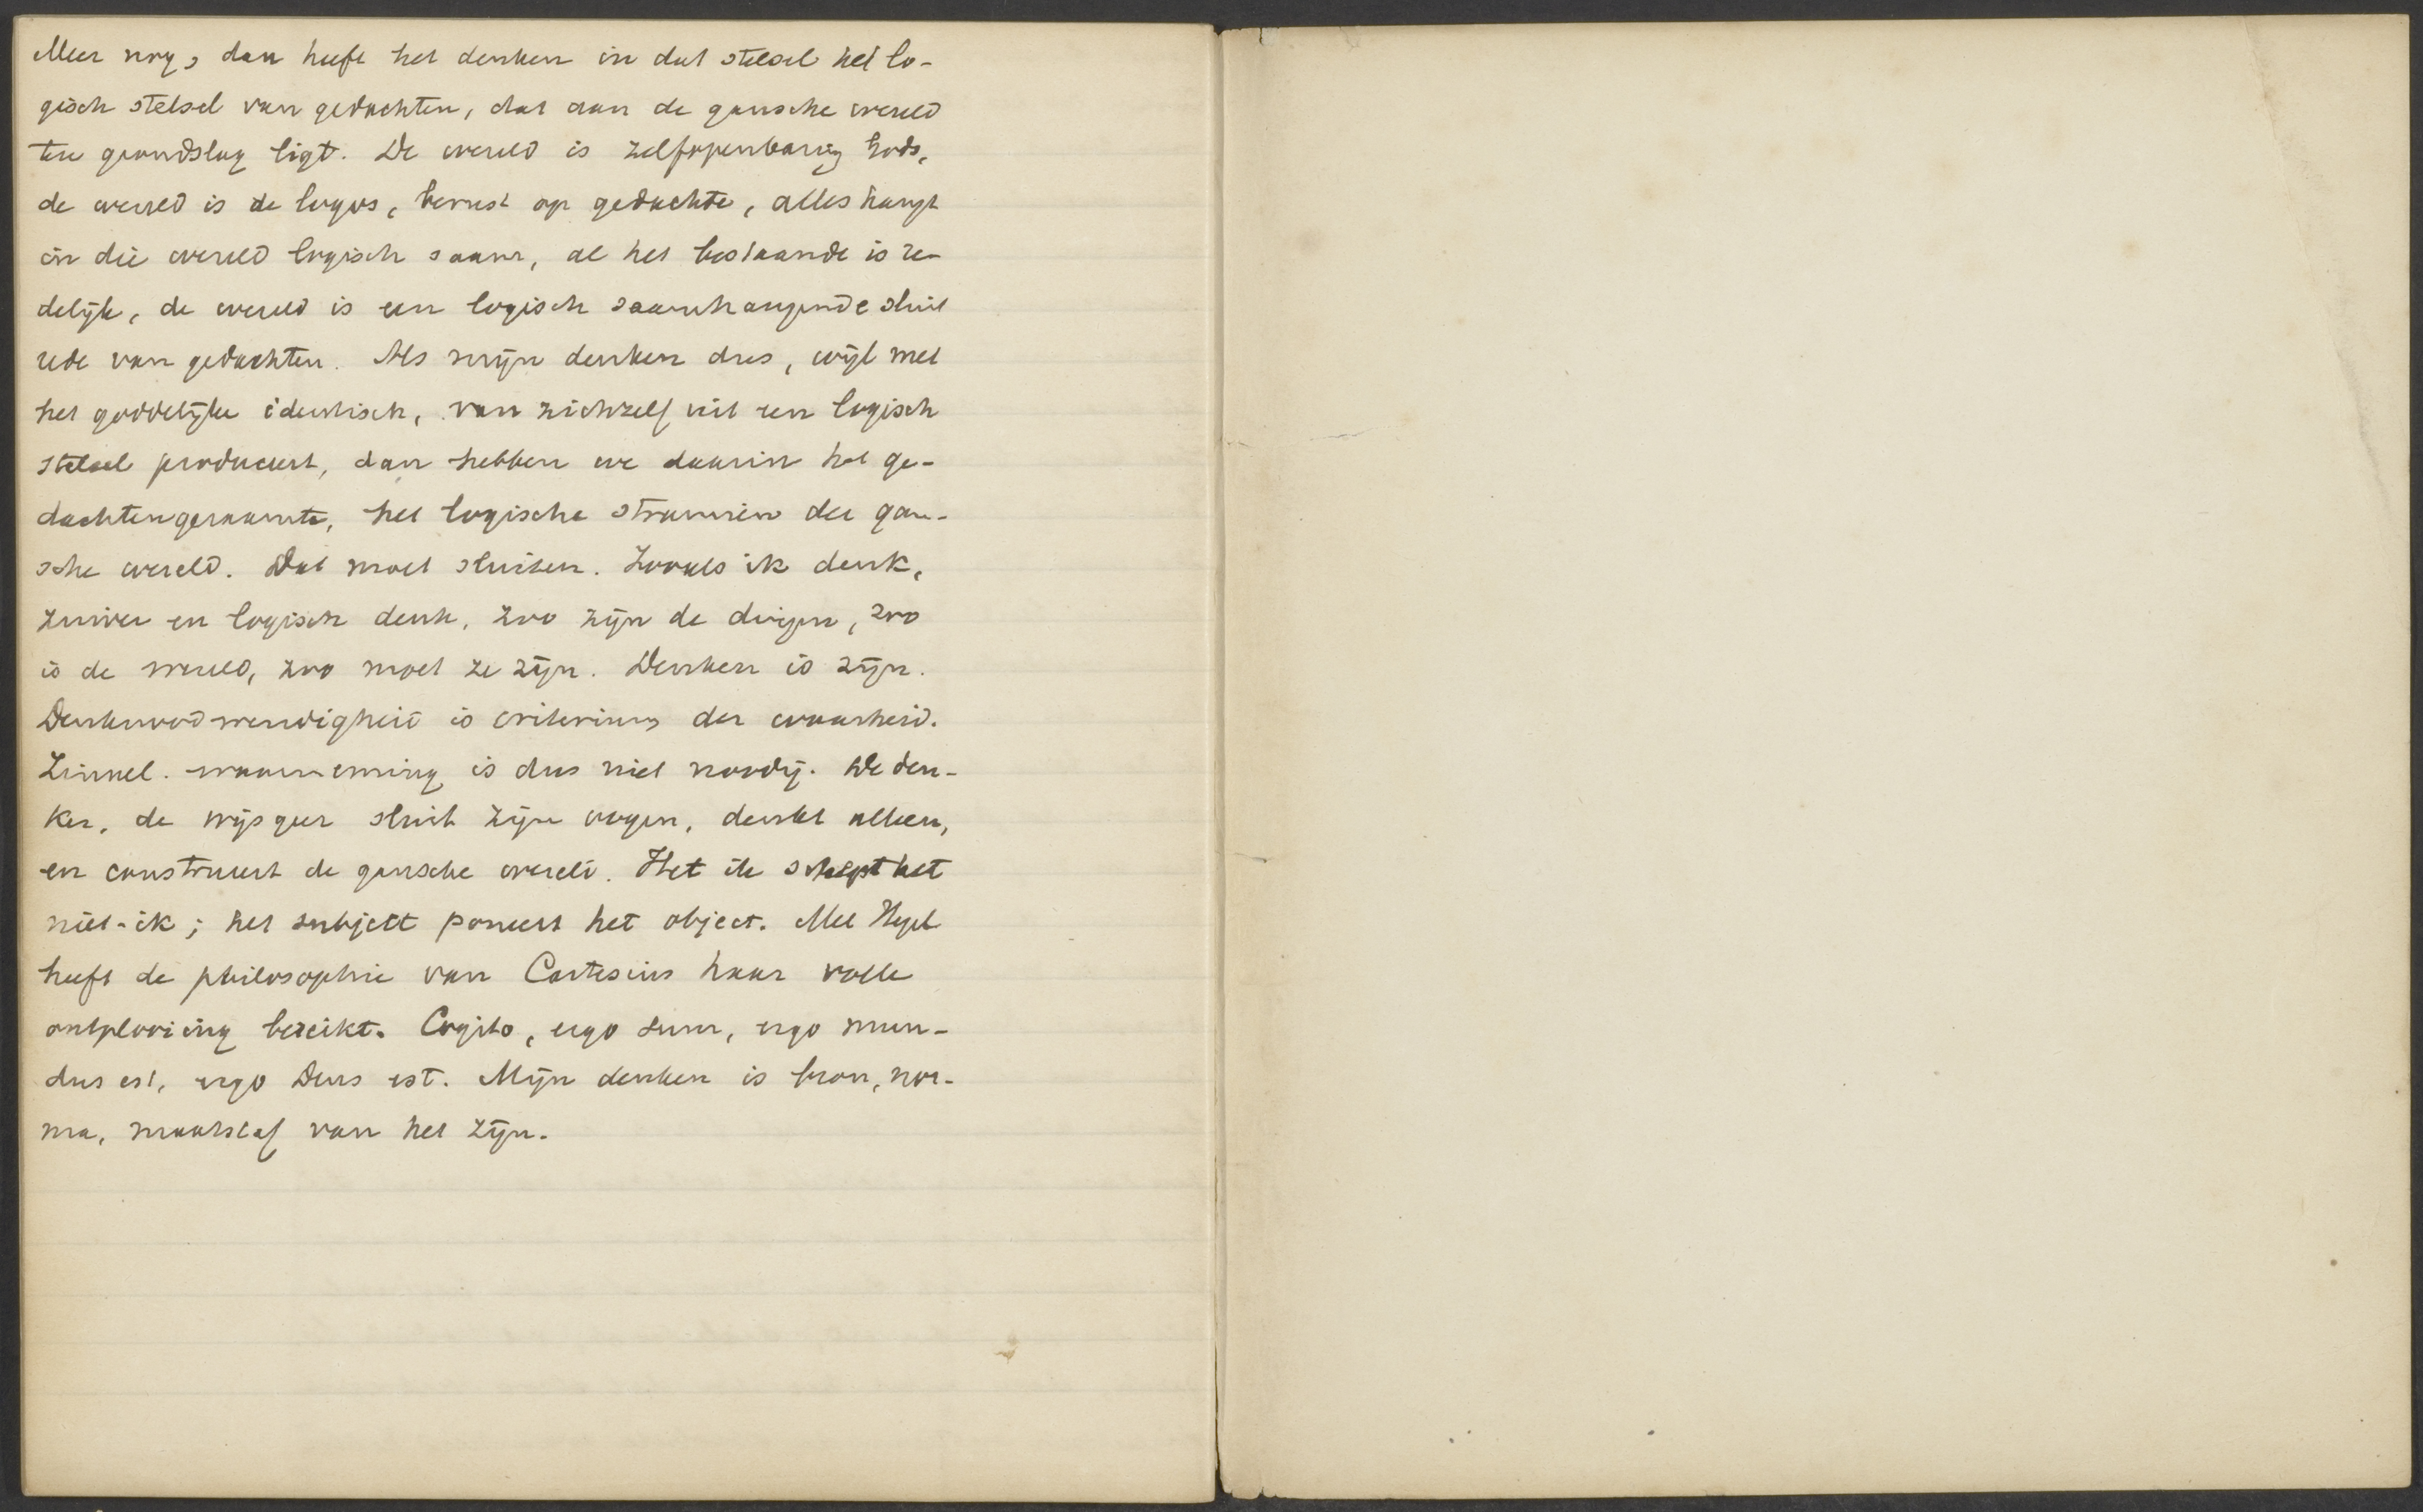 Meer nog, dan heeft het denken in dat stelsel het lo-
gisch stelsel van gedachten, dat aan de gansche wereld
ten grondslag ligt. De wereld is zelfopenbaring Gods,
de wereld is de logos, berust op gedachte, alles hangt
in die wereld logisch saam, al het bestaande is re-
delijk, de wereld is een logisch saamhangende sluit
rede van gedachten. Als mijn denken dus, wijl met
het goddelijke identisch, van zichzelf uit een logisch
stelsel produceert, dan hebben we daarin het ge-
dachtengeraamte, het logische stramien der gan-
sche wereld. Dat moet sluiten. Zooals ik denk,
zuiver en logisch denk, zoo zijn de dingen, zoo
is de wereld, zoo moet ze zijn. Denken is zijn.
Denknoodwendigheid is criterium der waarheid.
Zinnel. waarneming is dus niet noodig. De den-
ker, de wijsgeer sluit zijn oogen, denkt alleen,
en construeert de gansche wereld. Het ik schept het
niet-ik; het subject poneert het object. Met Hegel
heeft de philosophie van Cartesius haar volle
ontplooiing bereikt. Cogito, ergo sum, ergo mun-
dus est, ergo Deus est. Mijn denken is bron, nor-
ma, maatstaf van het zijn.